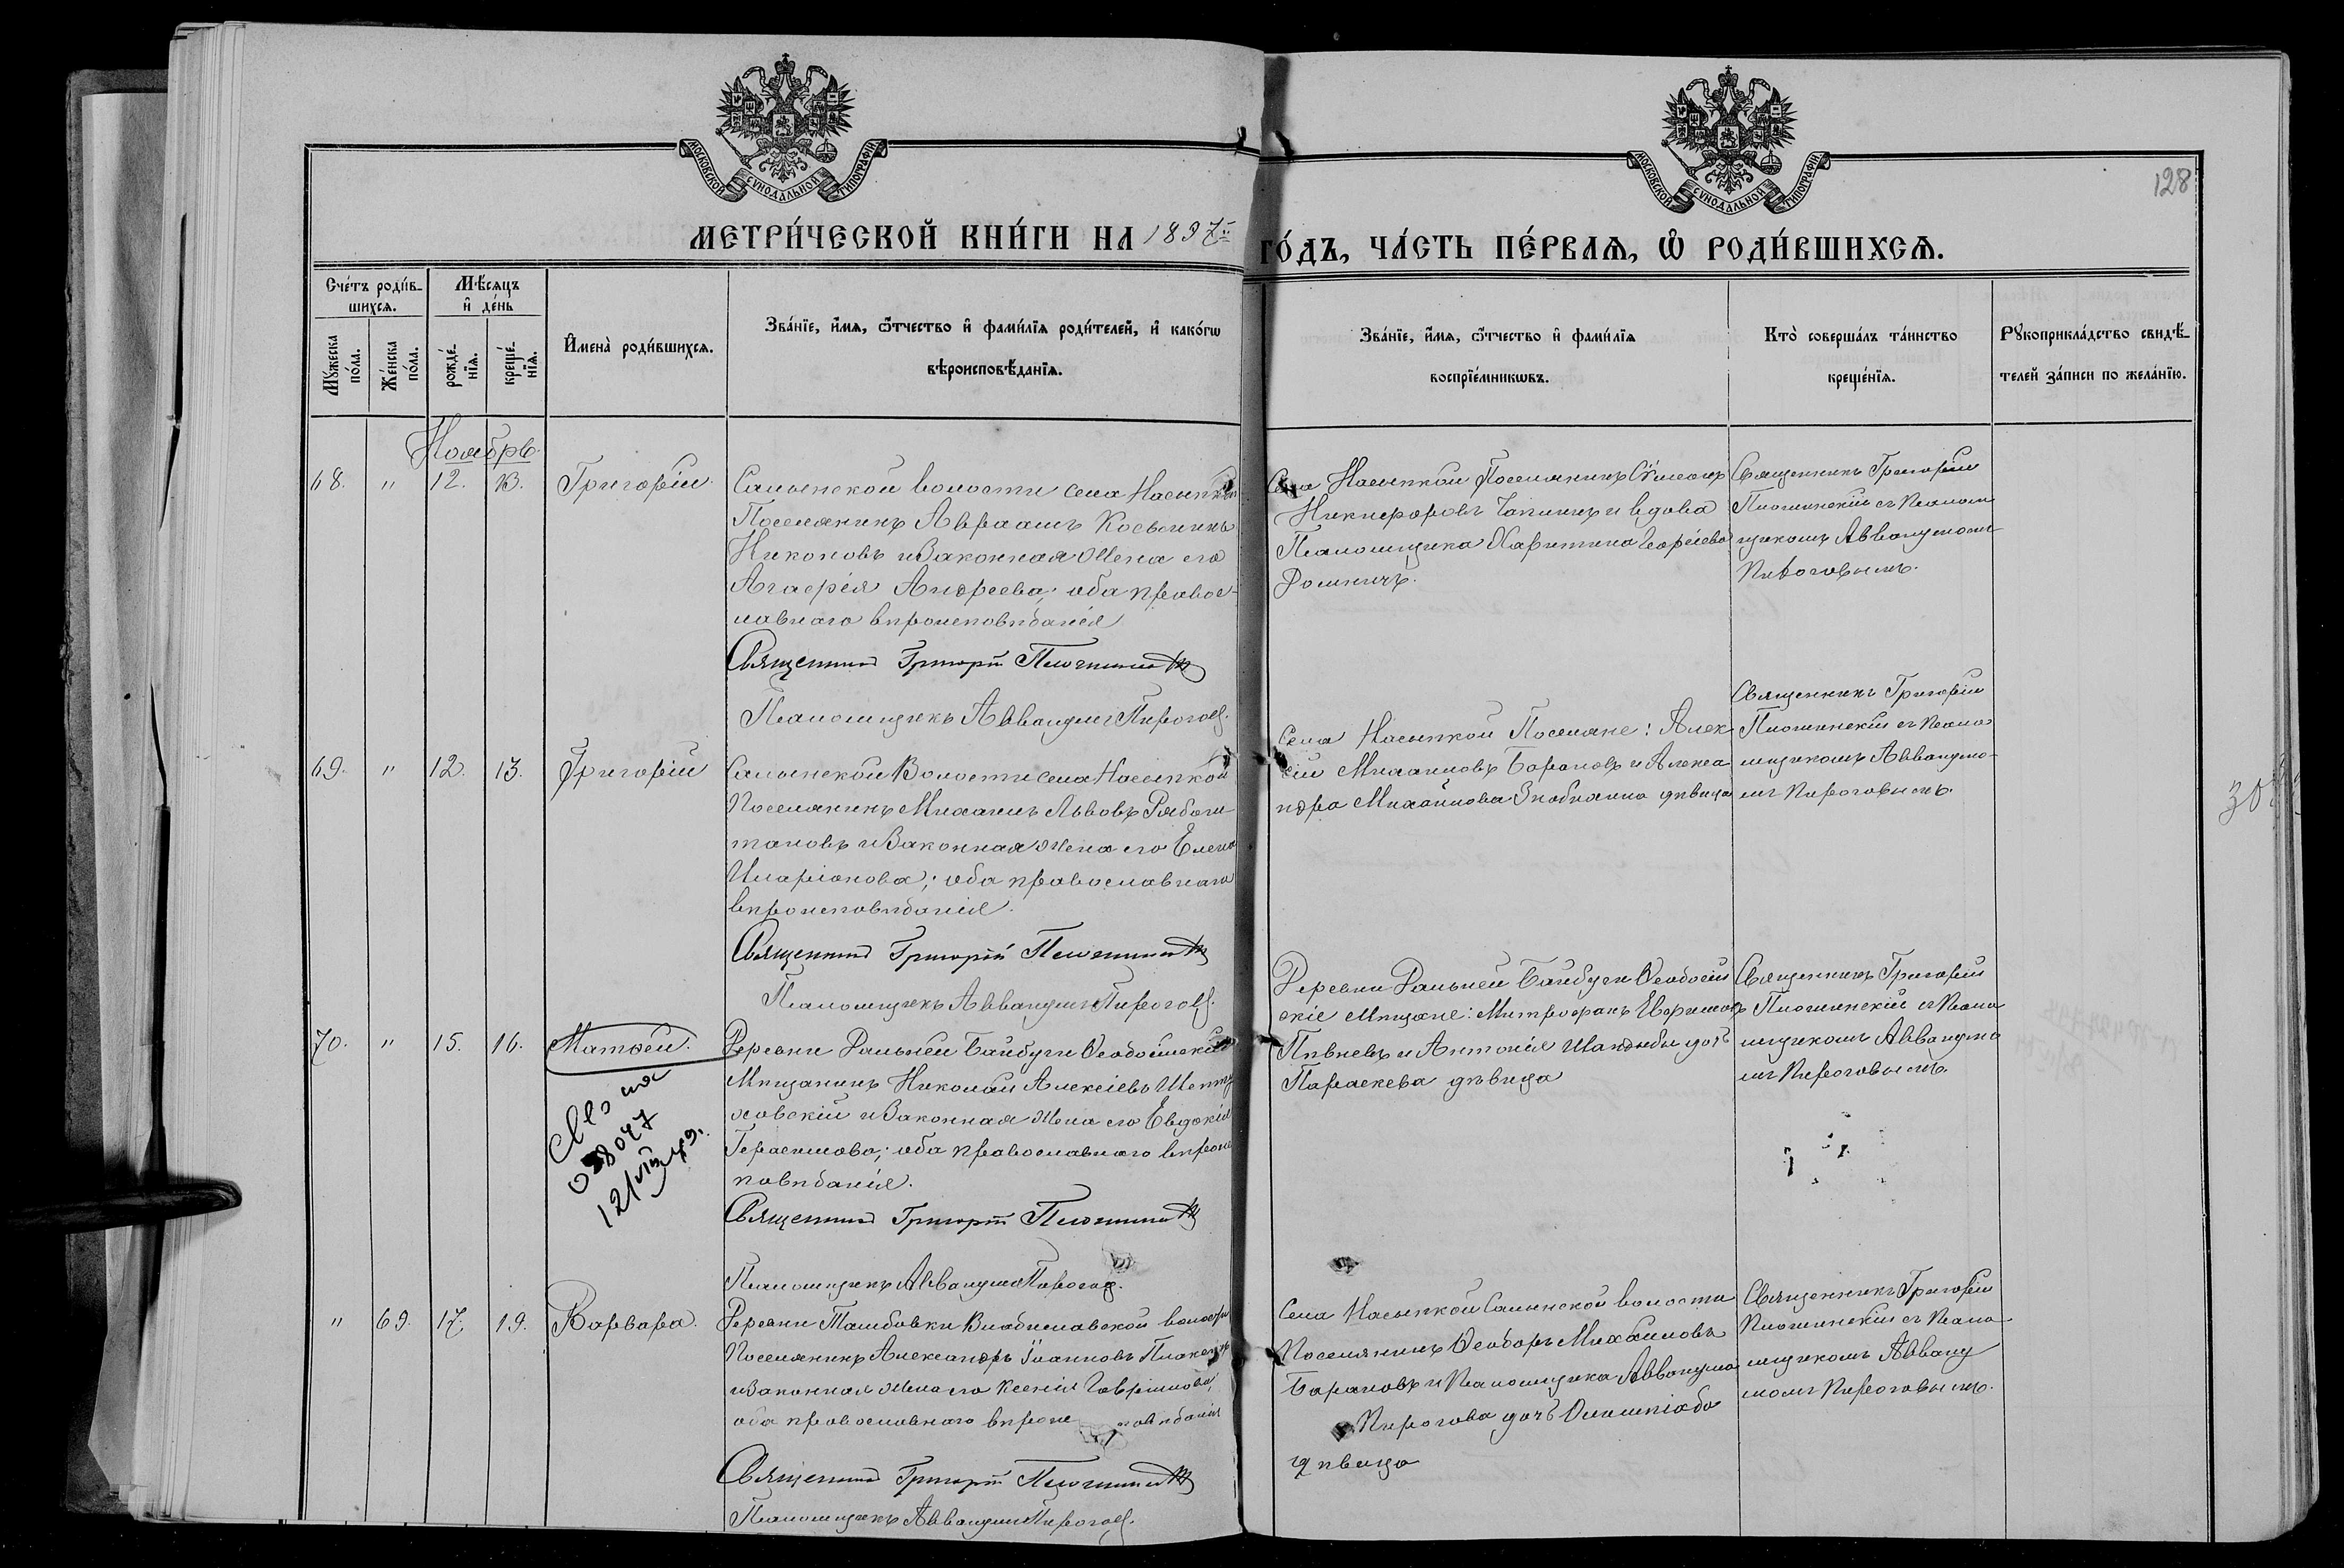 МОСКОВСКОЙ СУНОДАЛЬНОЙ ТИПОГРАФІИ
МОСКОВСКОЙ СУНОДАЛЬНОЙ ТИПОГРАФІИ
128
МЕТРИ́ЧЕСКОЙ КНИ́ГИ НА 1897й ГО́ДЪ, ЧА́СТЬ ПЕ́РВАѦ, Ѡ РОДИ́ВШИХСѦ.
Сче́тъ роди́в-
шихсѧ.
Мѣ́сяцъ
и҆ де́нь
Мꙋ́жеска по́ла.
Же́нска по́ла.
рожде́-нїѧ.
креще́-нїѧ.
И҆мена̀ роди́вшихсѧ.
Зва́нїе, и҆́мѧ, ѻ҆́тчество и҆ фами́лїѧ роди́телей, и҆ како́гѡ
вѣроисповѣ́данїѧ.
Зва́нїе, и҆́мѧ, ѻ҆́тчество и҆ фами́лїѧ
воспрїе́мникѡвъ.
Кто̀ соверша́лъ та́инство
креще́нїѧ.
Рꙋкоприкла́дство свидѣ́-
телей за́писи по жела́нїю.
Ноябрь.
68. " 12. 13. Григорій.
Салынской волости села Насыпкой
Поселянинъ Авраамъ Косьминъ
Никоновъ и законная жена его
Агафія Андреева; оба правос-
лавнаго вѣроисповѣданія
Священникъ Григорій
Псаломщикъ Аввакумъ Пироговъ.
Села Насыпкой Поселянинъ Сѵмеонъ
Никифоровъ и вдова
Псаломщика Харитина Георгіева
Священникъ Григорій
съ Псалом
щикомъ Аввакумомъ
Пироговымъ.
69. " 12. 13. Григорій
Салынской Волости села Насыпкой
Поселянинъ Михаилъ Львовъ Рябош-
тановъ и законная жена его Елена
Иларіонова; оба православнаго
вѣроисповѣданія.
Священникъ Григорій
Псаломщикъ Аввакумъ Пироговъ.
Села Насыпкой Поселяне: Алек
сій Михаиловъ Барановъ и Алекса
ндра Михайлова дѣвица
Священникъ Григорій
съ Псало
мщикомъ Аввакумо-
мъ Пироговымъ.
70. " 15. 16. Матѳей.
Деревни Дальней Байбуги Ѳеодосійскій
Мѣщанинъ Николай Алексіевъ
и законная жена его Евдокія
Герасимова; оба православнаго вѣроис
повѣданія.
Священникъ Григорій
Псаломщикъ Аввакумъ Пироговъ.
Деревни Дальней Байбуги Ѳеодосій
скіе мѣщане: Митрофанъ Ефремовъ
Пивневъ и Антонія дочь
Параскева дѣвица
Священникъ Григорій
съ Псало
мщикомъ Аввакумо
мъ Пироговымъ.
" 69. 17. 19. Варвара.
Деревни Тамбовки Владиславской волости
Поселянинъ Александръ Іоанновъ
и законная жена его Ксенія
оба православнаго вѣроисповѣданія
Священникъ Григорій
Псаломщикъ Аввакумъ Пироговъ.
Села Насыпкой Салынской волости
Поселянинъ Ѳеодоръ Михайловъ
Барановъ и Псаломщика Аввакума
Пирогова дочь Олимпіада
дѣвица
Священникъ Григорій
съ Псало-
мщикомъ Авваку
момъ Пироговымъ.